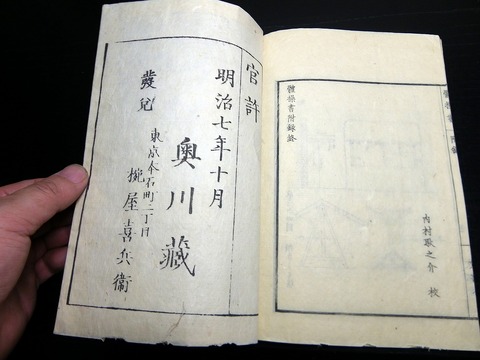 體操書附録終
内村耿之介 校
官許
明治七年十月
奥川藏
發兌
東京本石町二丁目
椀屋喜兵衛